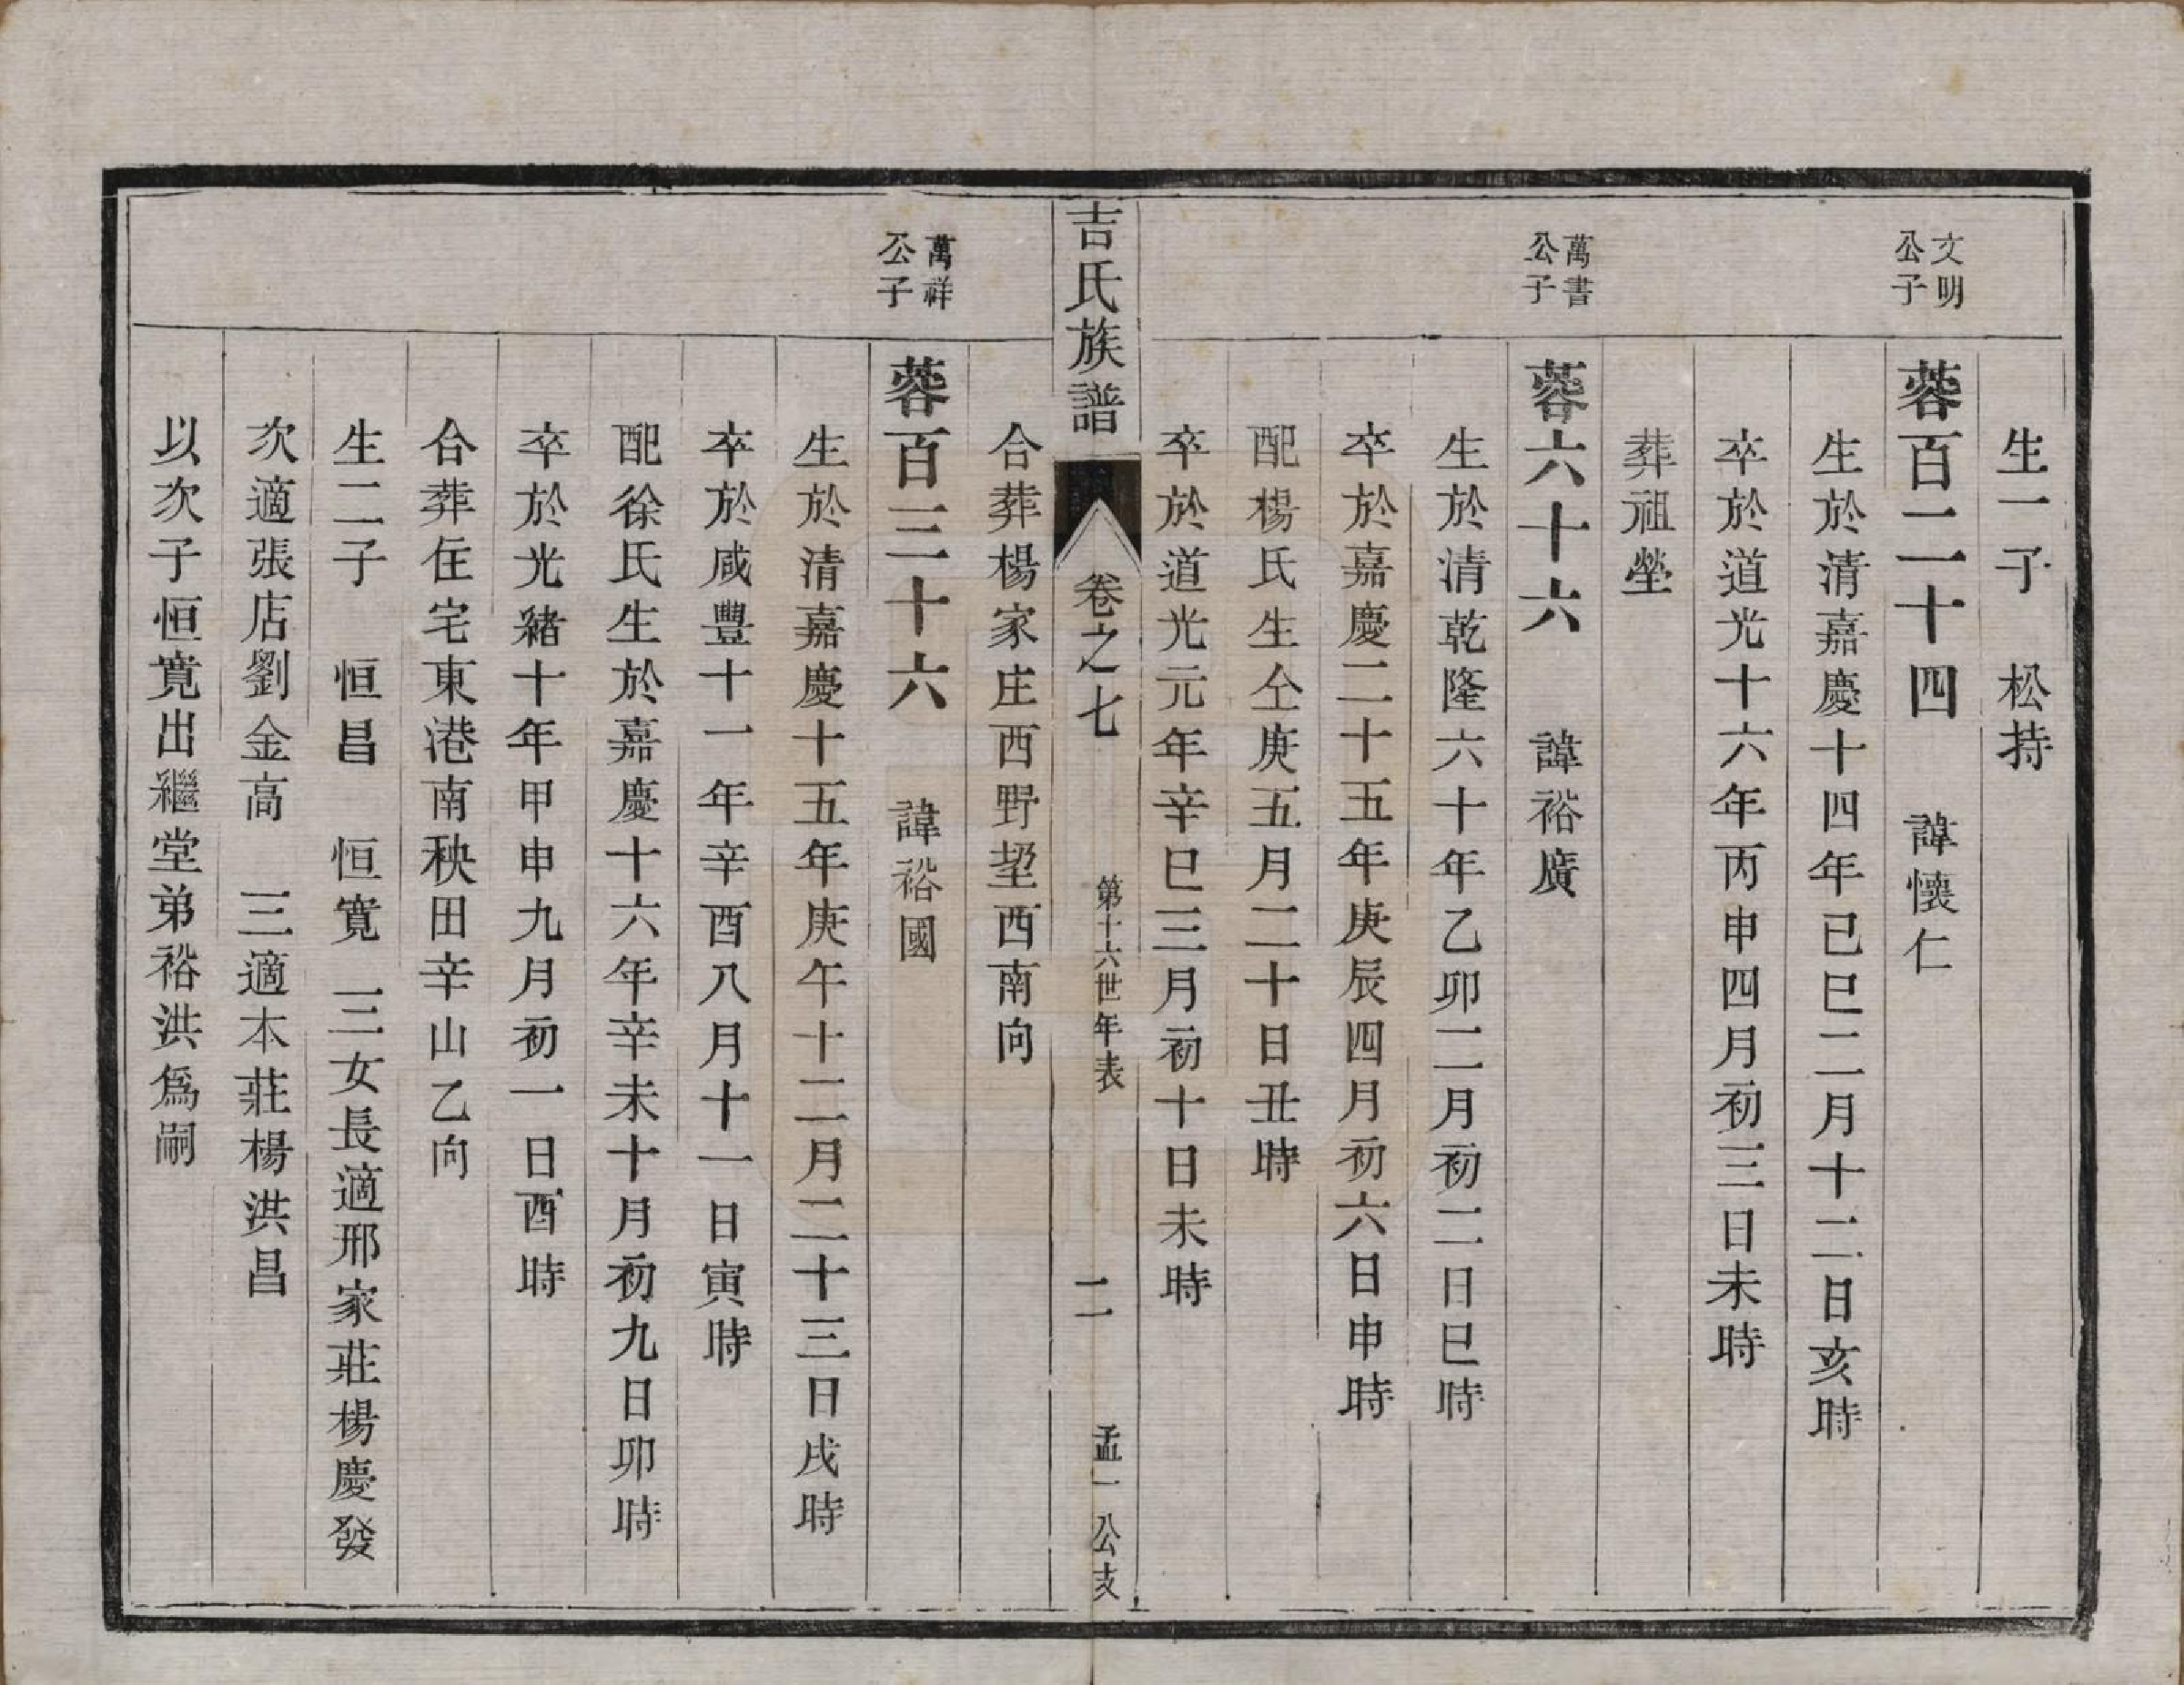 生一子　松持
文明公子
蓉百二十四　諱懷仁
生於清嘉慶十四年己巳二月十二日亥時
卒於道光十六年丙申四月初三日未時
葬祖塋
萬書公子
蓉六十六　諱裕廣
生於清乾隆六十年乙卯二月初二日巳時
卒於嘉慶二十五年庚辰四月初六日申時
配楊氏生仝庚五月二十日丑時
卒於道光元年辛巳三月初十日未時
吉氏族譜　卷之七　第十六世年表　二　孟一公支
合葬楊家庄西野堊西南向
萬祥公子
蓉百三十六　諱裕國
生於清嘉慶十五年庚午十二月二十三日戌時
卒於咸豐十一年辛酉八月十一日寅時
配徐氏生於嘉慶十六年辛未十月初九日卯時
卒於光緒十年甲申九月初一日酉時
合葬住宅東港南秧田辛山乙向
生二子　恒昌　恒寬　三女長適邢家莊楊慶發
次適張店劉金高　三適本莊楊洪昌
以次子恒寬出繼堂弟裕洪爲嗣